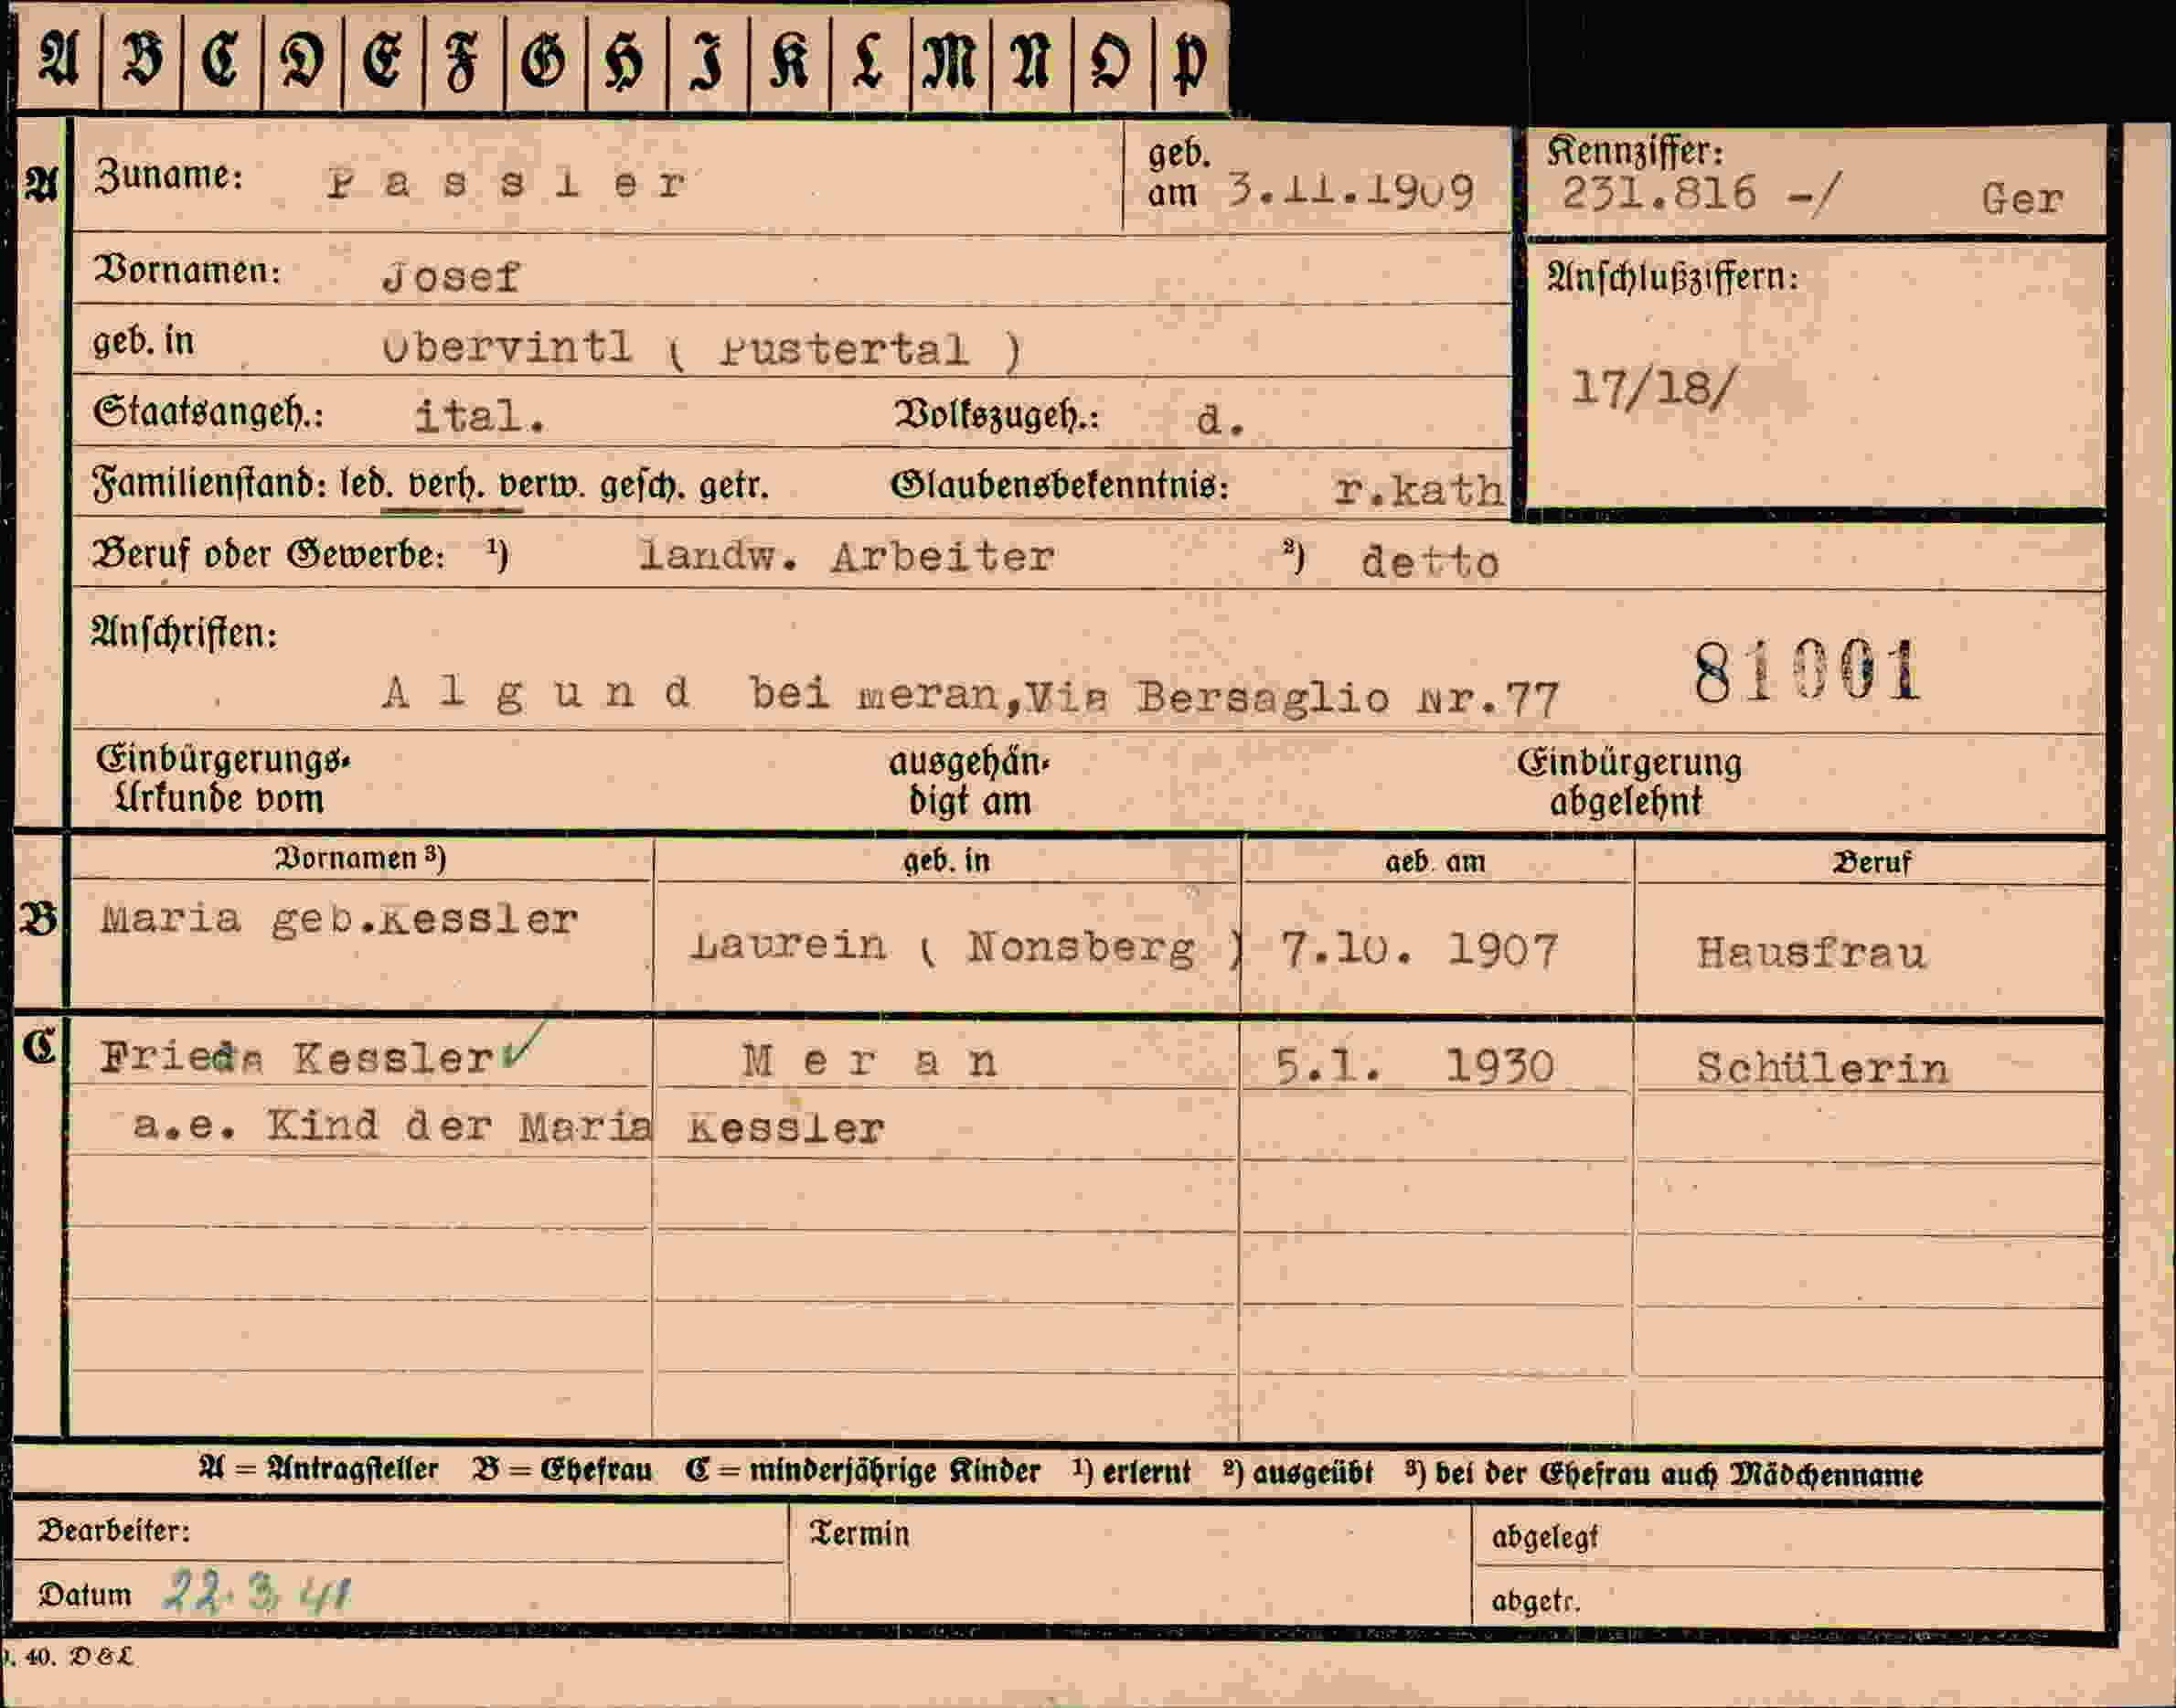 A B C D E F G H I K L M N O P
A Zuname: P a s s l e r geb. am 3.11.1909 Kennziffer: 231.816 -/ Ger
Vornamen: Josef Anschlußziffern:
geb. in Obervintl ( Pustertal ) 17/18/
Staatsangeh.: ital. Volkszugeh.: d.
Familienstand: led. verh. verw. gesch. getr. Glaubensbekenntnis: r.kath
Beruf oder Gewerbe: ¹) landw. Arbeiter ²) detto
Anschriften:
A l g u n d bei Meran,Via Bersaglio Nr.77 81001
Einbürgerungs- ausgehän- Einbürgerung
Urkunde vom digt am abgelehnt
Vornamen ³) geb. in geb. am Beruf
B Maria geb.Kessler Laurein ( Nonsberg ) 7.10. 1907 Hausfrau
C Frieda Kessler ✓ M e r a n 5.1. 1930 Schülerin
a.e. Kind der Maria Kessler
A = Antragsteller B = Ehefrau C = minderjährige Kinder ¹) erlernt ²) ausgeübt ³) bei der Ehefrau auch Mädchenname
Bearbeiter: Termin abgelegt
Datum 22.3.41 abgetr.
40. D&L